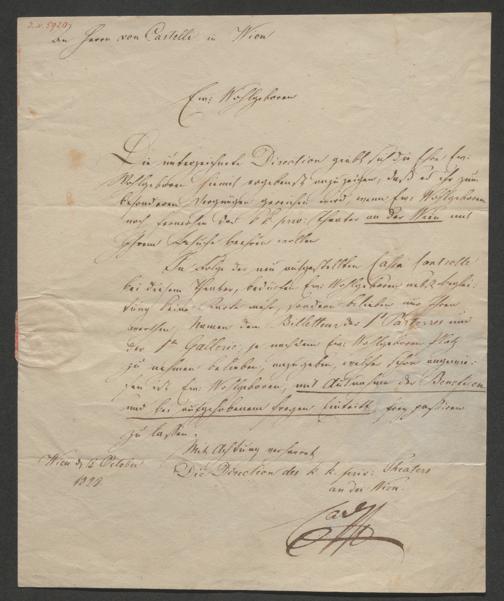 J.N. 5920
An Herrn von Castelli in Wien
Euer Wohlgeboren
Die unterzeichnete Direction gibt sich die Ehre Euer
Wohlgeboren hiemit ergebenst anzuzeigen, daß es ihr zum
besonderen Vergnügen gereichen wird, wenn Euer Wohlgeboren
noch fernerhin das k. k. priv. Theater an der Wien mit
Ihrem Besuche beehren wollen
In Folge der neu aufgestellten Cassa Controlle
bei diesem Theater, bedürfen Euer Wohlgeboren
keine Karte mehr, sondern belieben nur Ihren
werthen Namen dem Billetteur des 1t Parterres und
der 1ten Gallerie, je nachdem Euer Wohlgeboren Platz
zu nehmen belieben, anzugeben, welcher schon angewie-
sen ist Euer Wohlgeboren, mit Ausnahme der Benefice
und bei aufgehobenem freyen Eintritte, frey passiren
zu lassen.
Mit Achtung verharret
Wien d. October
Die Direction des k. k. priv. Theaters
an der Wien.
Carl